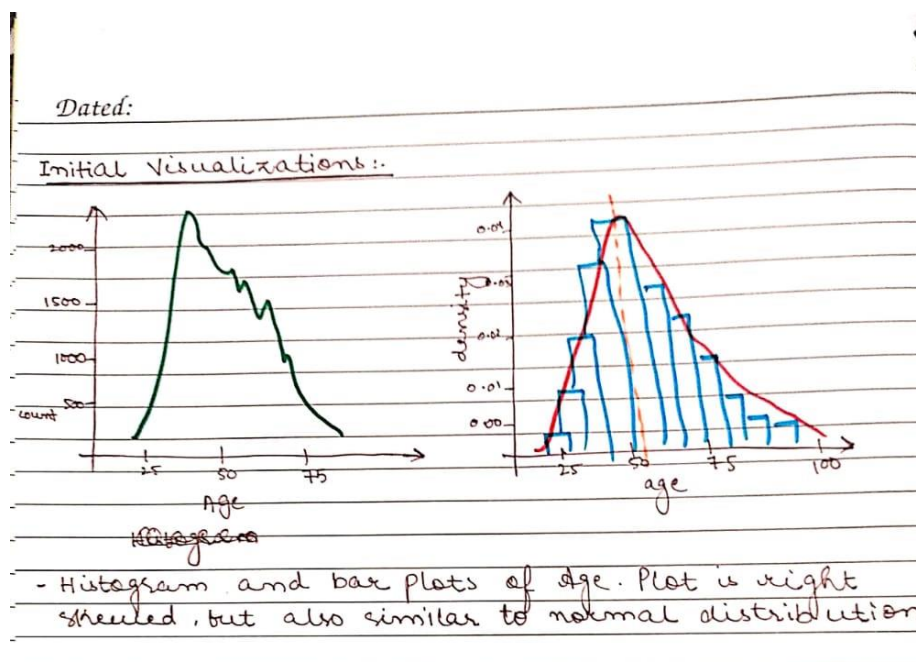 Dated:
Initial Visualizations:-
2000
1500
1000
500
count
25 50 75
Age
Histogram
0.04
0.03
0.02
0.01
0.00
density
25 50 75 100
age
- Histogram and bar plots of Age. Plot is right
skewed, but also similar to normal distribution